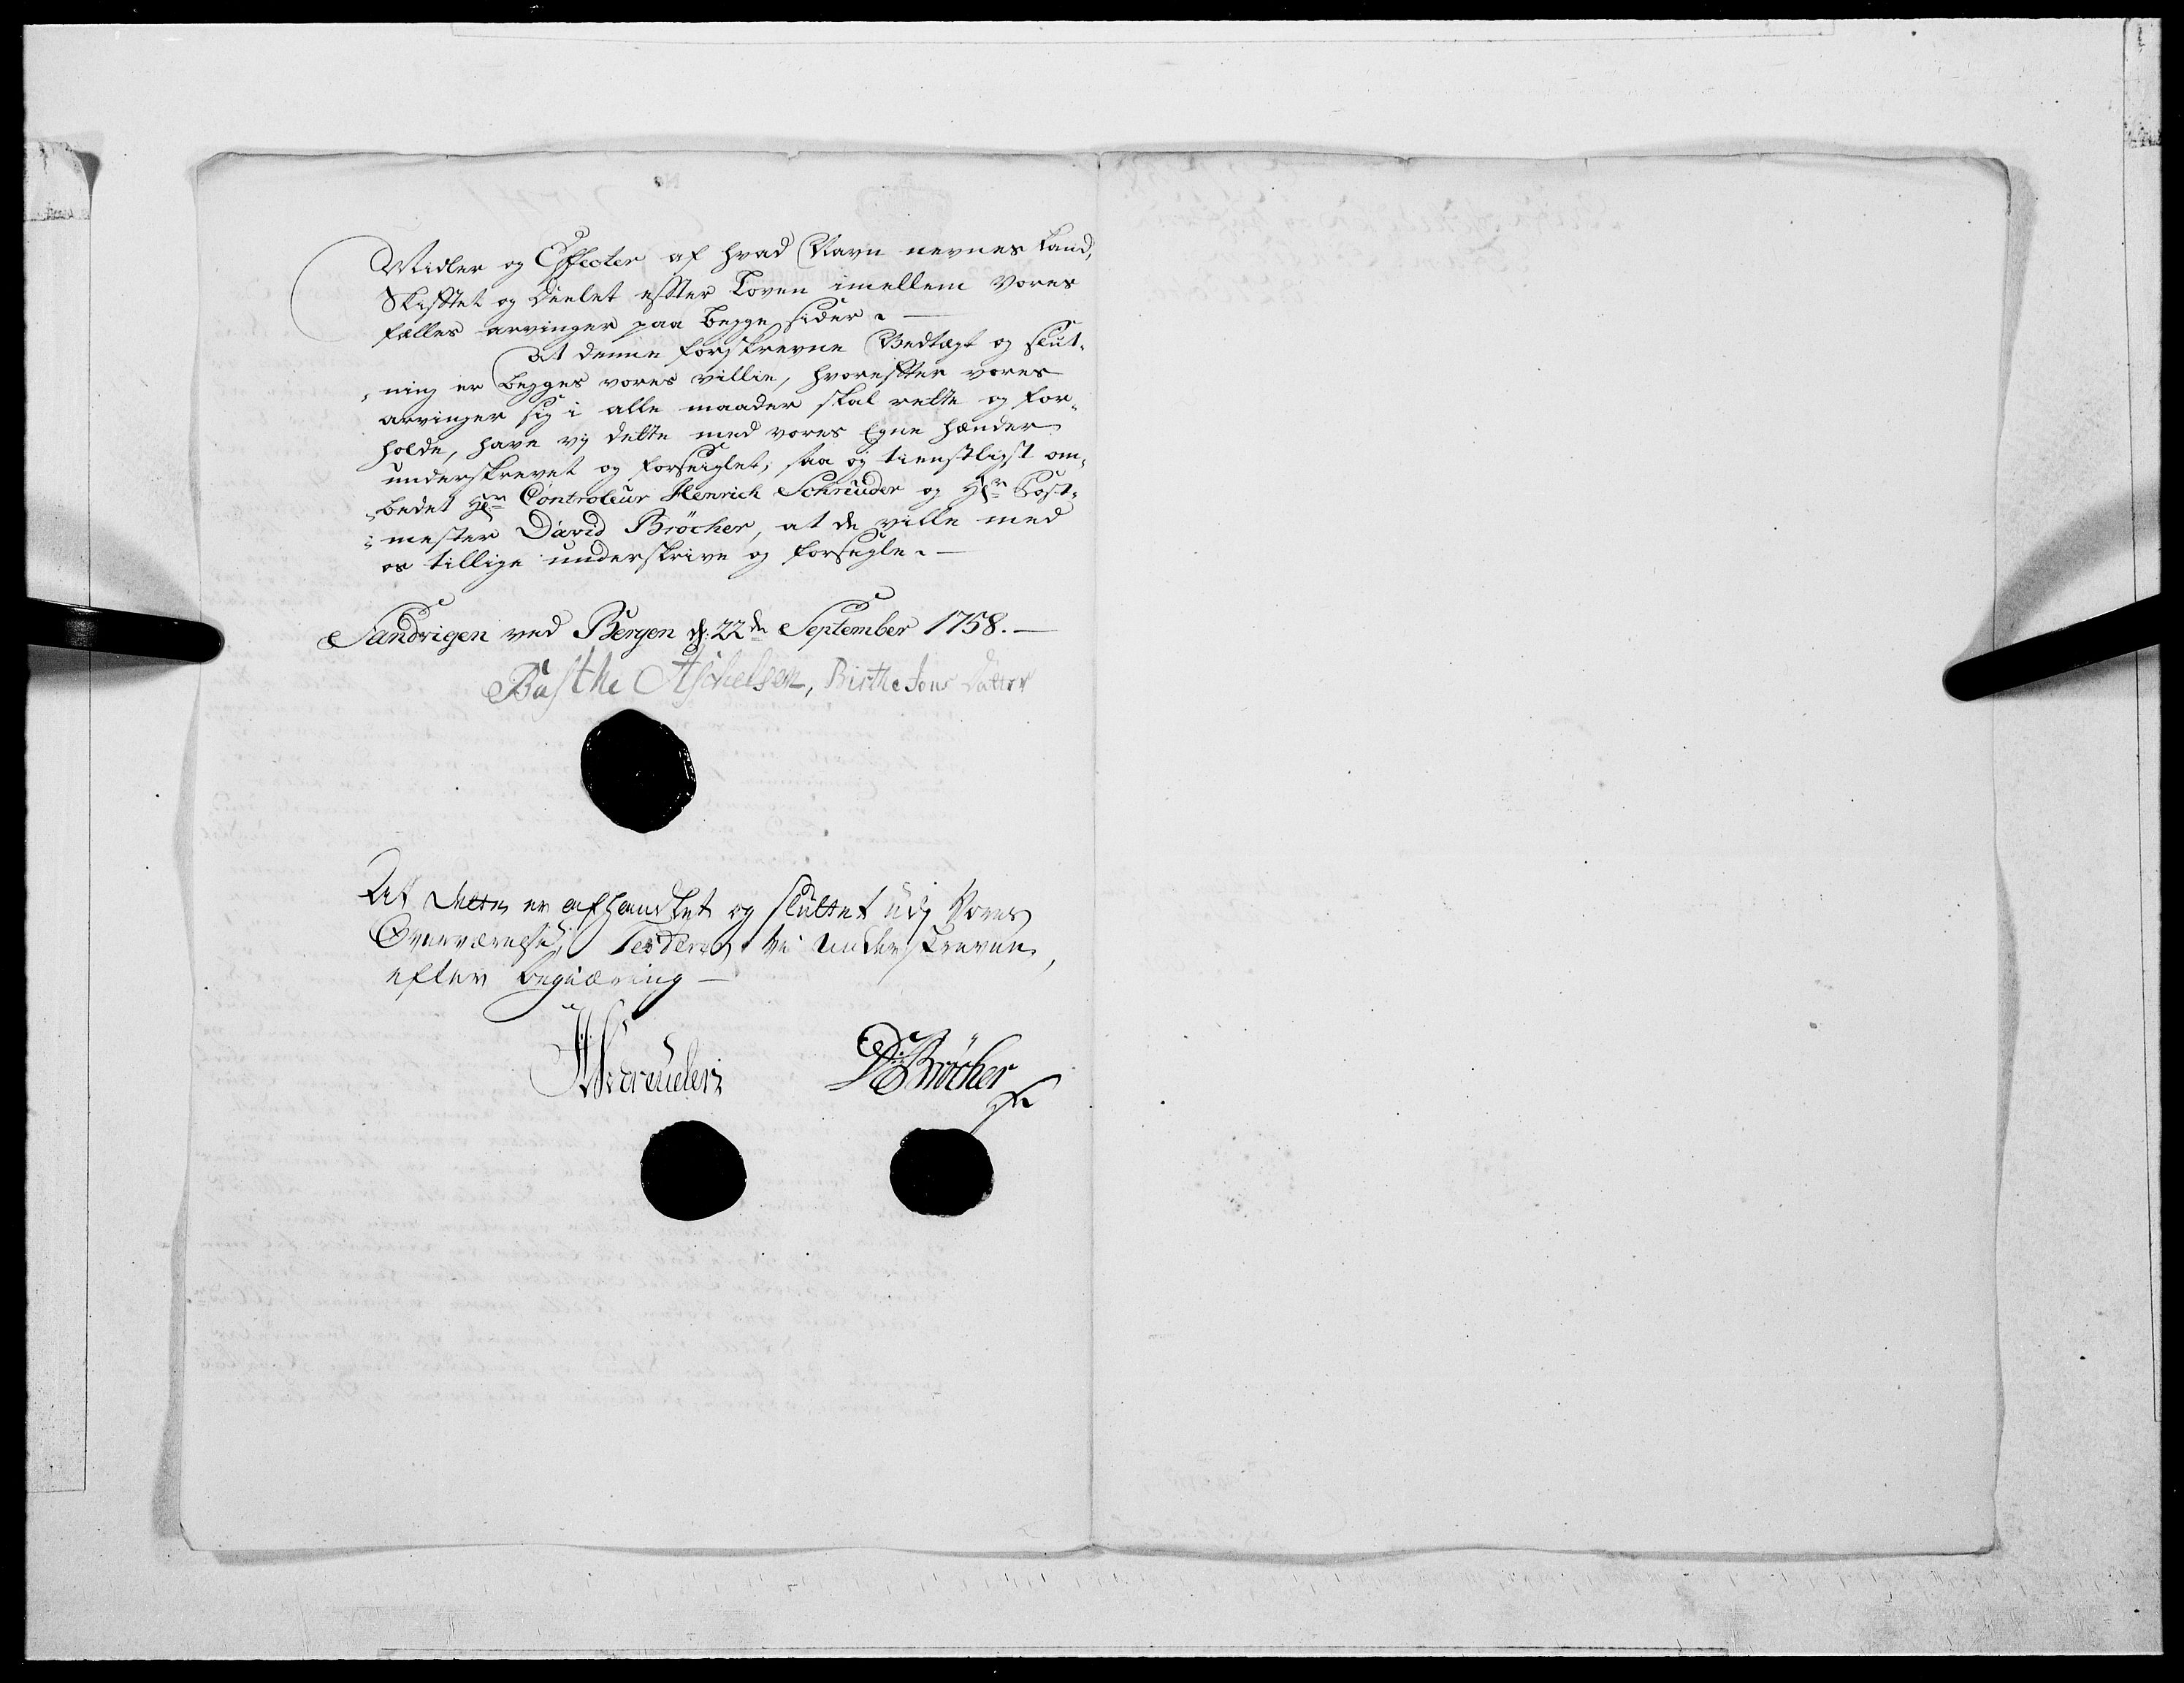 Midler og Effecter af hvad Navn nevnes kand,
Skifftet og deelet effter Loven imellem Vores
fælles arvinger paa begge sider. —
At denne forskrevne Vedtægt og slut-
ning er begges vores villie, hvoreffter vores
arvinger sig i alle maader skal rette og for-
holde, have vj dette med vores Egne hænder
underskrevet og forseiglet, saa og tienstligst om-
bedet Hr Controleur Henrich Schreuder og Hr Post-
mester David Bröcher, at de ville med
os tillige underskrive og forsegle. —
Sandvigen ved Bergen d: 22de September 1758. —
Aschelsen, Birthe Jons datter
At dette er afhandlet og sluttet udj Vores
Overværelse, Testerer Vi underskrevne,
efter begiæring —
HSchreuder
DBröcher